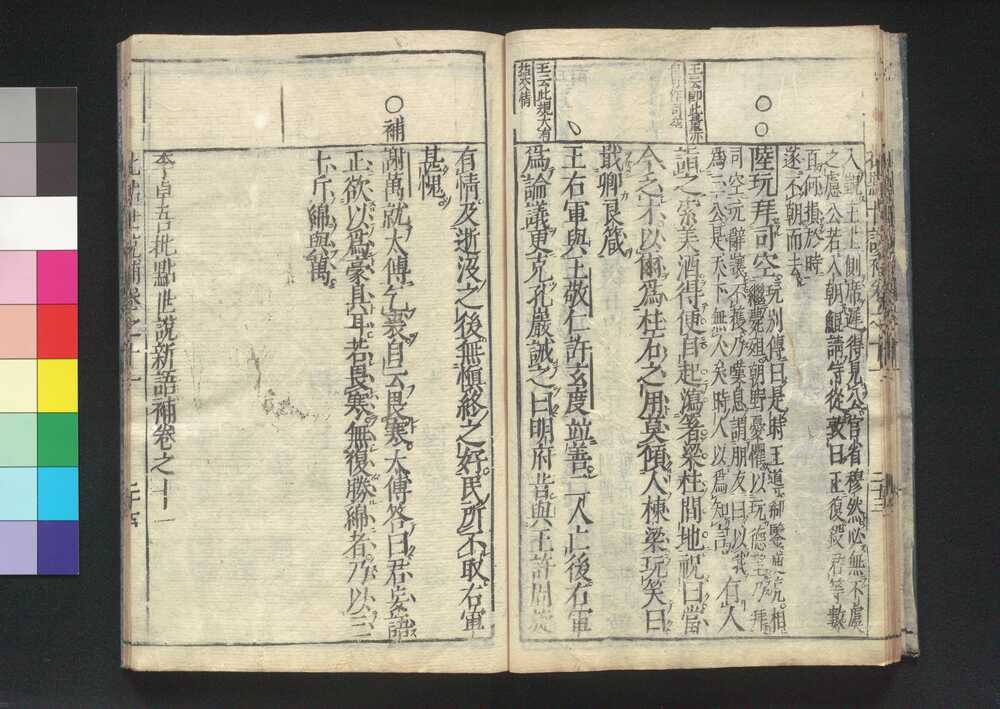 入覲主上側席遲得見公官省穆然必無不虞
之慮公若入朝鯤請侍從敦曰正復殺君等數
百何損於時
遂不朝而去
○○
陸玩拜司空
玩別傳曰是時王道郗鑒庾亮相
繼薨殂朝野憂懼以玩德望乃拜
司空玩辭讓不獲乃嘆息謂朋友曰以我
為三公是天下無人矣時人以為知言
有人
詣之索美酒得便自起瀉著梁柱間地祝曰當
今乏才以爾爲柱石之用莫傾人棟梁玩笑曰
戢卿良箴
王右軍與王敬仁許玄度並善二人亡後右軍
爲論議更克孔巖誡之曰明府昔與王許周旋
王云此規大有
益交情
有情及逝沒之後無愼終之好民所不取右軍
甚愧
○補
謝萬就太傅乞裘自云畏寒太傅答曰君妄語
正欲以爲豪具耳若畏寒無復勝綿者乃以三
十斤綿與萬
李卓吾批點世說新語補卷之十一